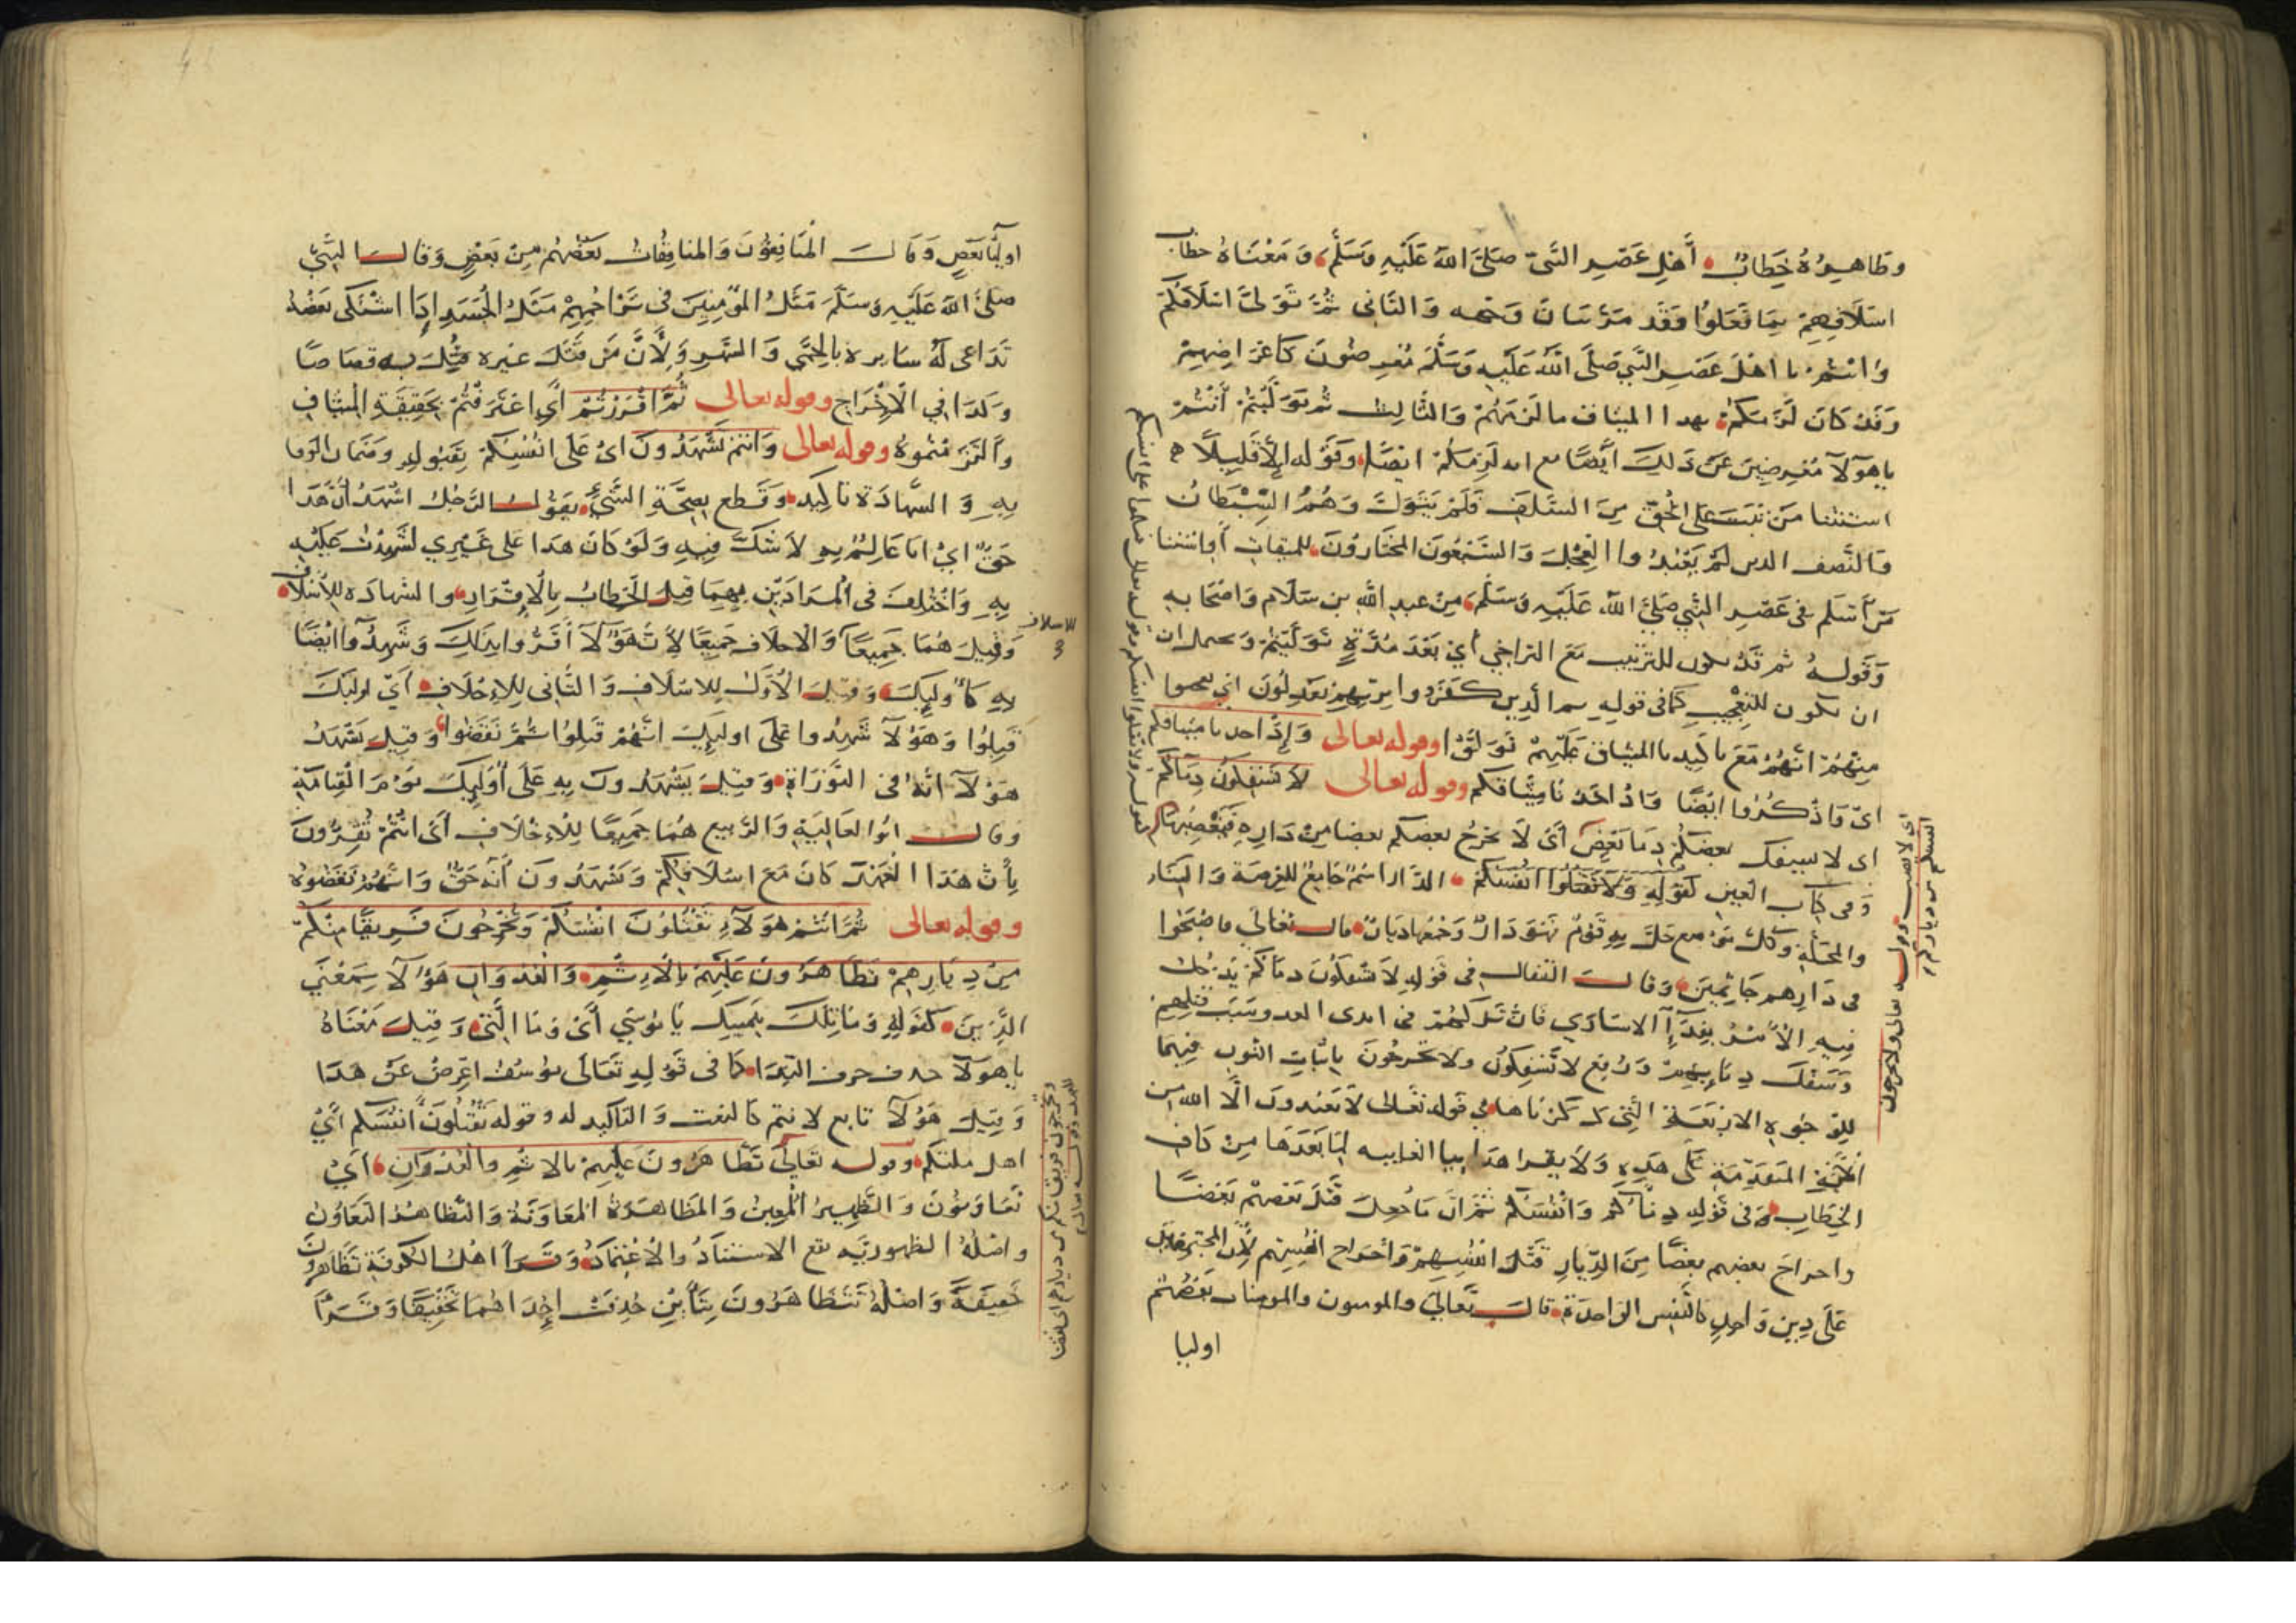 وظاهره خطاب أهل عصر النبي صلى الله عليه وسلم، ومعناه خطاب
اسلافهم بما فعلوا وقد مر بيان وجهه والثاني ثم تولى اسلافكم
وانتم يا اهل عصر النبي صلى الله عليه وسلم معرضون كاعراضهم
وقد كان لزمكم بهذا الميثاق ما لزمهم والثالث ثم توليتم أنتم
يا هولآ معرضين عن ذلك أيضا مع انه لزمكم ايضا، وقوله إلا قليلا
استثنا من ثبت على الحق من السلف فلم يتول وهم السبطان
والنصف الدين لم يعبدوا العجل والسبعون المختارون للميقات أو استثنا
من أسلم في عصر النبي صلى الله عليه وسلم، من عبد الله بن سلام واصحابه
وقوله ثم قد يكون للترتيب مع التراخي أي بعد مدة توليتم ويحتمل ان
ان يكون للتعجيب كما في قوله ثم الذين كفروا بربهم يعدلون اي تعجبوا
منهم انهم مع تاكيد الميثاق عليهم تولوا وقوله تعالى وإذ اخذنا ميثاقكم
اي واذكروا ايضا واذ اخذنا ميثاقكم وقوله تعالى لا تسفكون دماكم
اى لا يسفك بعضكم دما بعض أى لا يخرج بعضكم بعضا من داره فيغصبها
وفي كتاب العين كقوله ولا تقتلوا انفسكم الدار اسم جامع للعرصة والبنا
والمحلة وكل موضع حل به قوم فهو دار وجمعها ديار قال تعالى فاصبحوا
في دارهم جاثمين وقال القفال في قوله لا تسفكون دماكم يدخل
فيه الأمر بفدآ الاسارى فان تركهم في ايدي العدو سبب قتلهم
وسفك دمايهم ورفع لا تسفكون ولا تخرجون باثبات النون فيهما
للوجوه الاربعة التي ذكرناها في قوله تعالى لا تعبدون الا الله من
المتقدمة على هذه ولا يقرا هذا بيا الغايبه لما بعدها من كاف
الخطاب وفي قوله دماكم وانفسكم ثم ان ما جعل قتل بعضهم بعضا
واخراج بعضهم بعضا من الديار قتل انفسهم واخراج انفسهم لأن المجتمعين
على دين واحد كالنفس الواحدة قال تعالى والمومنون والمومنات بعضهم
اوليا
اوليآ بعض وقال المنافقون والمنافقات بعضهم من بعض وقال النبي
صلى الله عليه وسلم مثل المؤمنين في تراحمهم مثل الجسد إذا اشتكى بعضه
تداعى له سايره بالحمى والسهر ولأن من قتل غيره قتل به قصاصا
وكذا في الاخراج وقوله تعالى ثم اقررتم أي اعترفتم بحقيقة الميثاق
والتزمتموه وقوله تعالى وانتم تشهدون اى على انفسكم بقبوله وضمان الوفا
به والشهادة تاكيد وقطع بصحة الشيء يقول الرجل اشهد أن هذا
حق اي انا عالم به لا شك فيه ولو كان هذا على غيري لشهدت عليه
به واختلف في المرادين بهما قيل الخطاب بالإقرار، والشهادة للأسلاف
وقيل هما جميعا والاخلاف جميعا لأن هؤلآ أقروا بذلك وشهدوا ايضا
به كأوليك، وقيل الأول للاسلاف والثاني للإخلاف أي اوليك
قبلوا وهؤلآ شهدوا على اوليك انهم قبلوا ثم نقضوا، وقيل تشهد
هؤلآ انه في التوراة وقيل يشهدون به على أوليك يوم القيامة
وقال ابو العالية والربيع هما جميعا للاخلاف أى انتم تقرون
بأن هذا العهد كان مع اسلافكم وتشهدون أنه حق وانهم نقضوه
وقوله تعالى ثم انتم هولآء تقتلون انفسكم وتخرجون فريقا منكم
من ديارهم تظاهرون عليهم بالاثم والعدوان هؤلآ بمعنى
الذين كقوله وما تلك بيمينك يا موسى أى وما التي وقيل معناه
يا هولآ حذف حرف الندا كما في قوله تعالى يوسف اعرض عن هذا
وقيل هؤلآ تابع لانتم كالنعت والتاكيد له وقوله تقتلون انفسكم أي
اهل ملتكم وقوله تعالى تظاهرون عليهم بالاثم والعدوان، أي
تعاونون والظهير المعين والمظاهرة المعاونة والتظاهر التعاون
واصله الظهور به مع الاستناد والاعتماد وقرأ اهل الكوفة تظاهرون
خفيفة واصله تتظاهرون بتأين حذفت إحداهما تخفيفا وقرأ